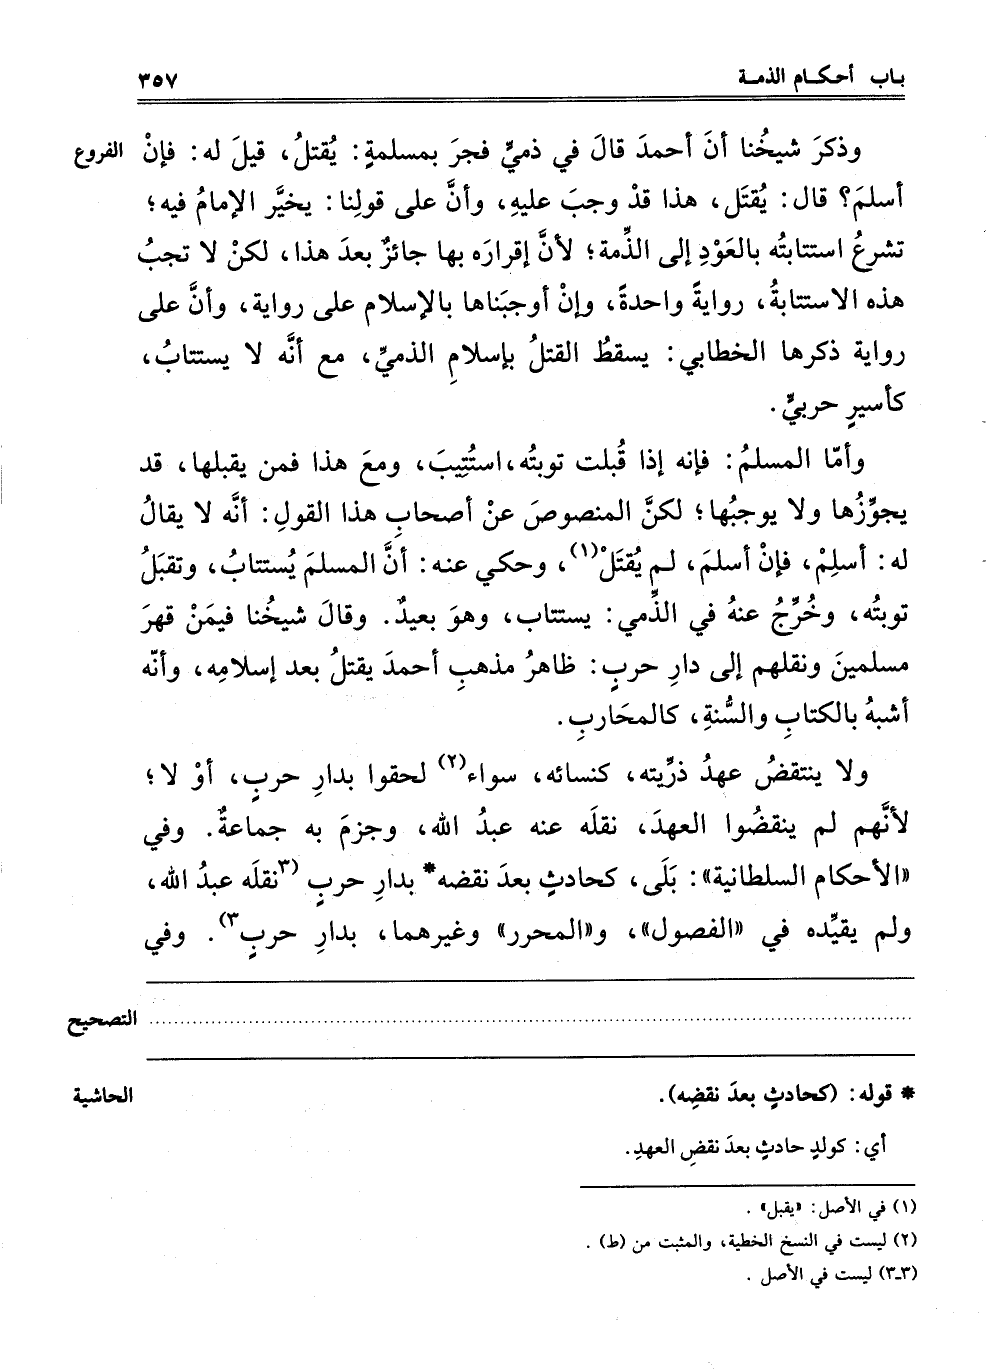 باب أحكام الذمة
٣٥٧
وذكرَ شيخُنا أنَ أحمدَ قالَ في ذميٍّ فجرَ بمسلمةٍ: يُقتلُ، قيلَ له: فإنْ
الفروع
أسلمَ؟ قال: يُقتَل، هذا قدْ وجبَ عليهِ، وأنَّ على قولِنا: يخيَّر الإمامُ فيه؛
تشرعُ استتابتُه بالعَوْدِ إلى الذِّمة؛ لأنَّ إقرارَه بها جائزٌ بعدَ هذا، لكنْ لا تجبُ
هذه الاستتابةُ، روايةً واحدةً، وإنْ أوجبَناها بالإسلام على رواية، وأنَّ على
رواية ذكرها الخطابي: يسقطُ القتلُ بإسلامِ الذميِّ، مع أنَّه لا يستتابُ،
كأسيرٍ حربيٍّ.
وأمّا المسلمُ: فإنه إذا قُبلت توبتُه،استُتِيبَ، ومعَ هذا فمن يقبلها، قد
يجوِّزُها ولا يوجبُها؛ لكنَّ المنصوصَ عنْ أصحابِ هذا القولِ: أنَّه لا يقالُ
له: أسلِمْ، فإنْ أسلمَ، لم يُقتَلْ(١)، وحكي عنه: أنَّ المسلمَ يُستتابُ، وتقبَلُ
توبتُه، وخُرِّجُ عنهُ في الذِّمي: يستتاب، وهوَ بعيدٌ. وقالَ شيخُنا فيمَنْ قهرَ
مسلمينَ ونقلهم إلى دارِ حربٍ: ظاهرُ مذهبِ أحمدَ يقتلُ بعد إسلامِه، وأنّه
أشبهُ بالكتابِ والسُّنةِ، كالمحَاربِ.
ولا ينتقضُ عهدُ ذرِّيته، كنسائه، سواء(٢) لحقوا بدارِ حربٍ، أوْ لا؛
لأنَّهم لم ينقضُوا العهدَ، نقلَه عنه عبدُ الله، وجزمَ به جماعةٌ. وفي
«الأحكام السلطانية»: بَلَى، كحادثٍ بعدَ نقضه* بدارِ حربٍ (٣نقلَه عبدُ الله،
ولم يقيِّده في «الفصول»، و«المحرر» وغيرهما، بدارِ حربٍ٣). وفي
التصحيح
* قوله: (كحادثٍ بعدَ نقضِه).
الحاشية
أي: كولدٍ حادثٍ بعدَ نقضِ العهدِ.
(١) في الأصل: «يقبل» .
(٢) ليست في النسخ الخطية، والمثبت من (ط) .
(٣ـ٣) ليست في الأصل .